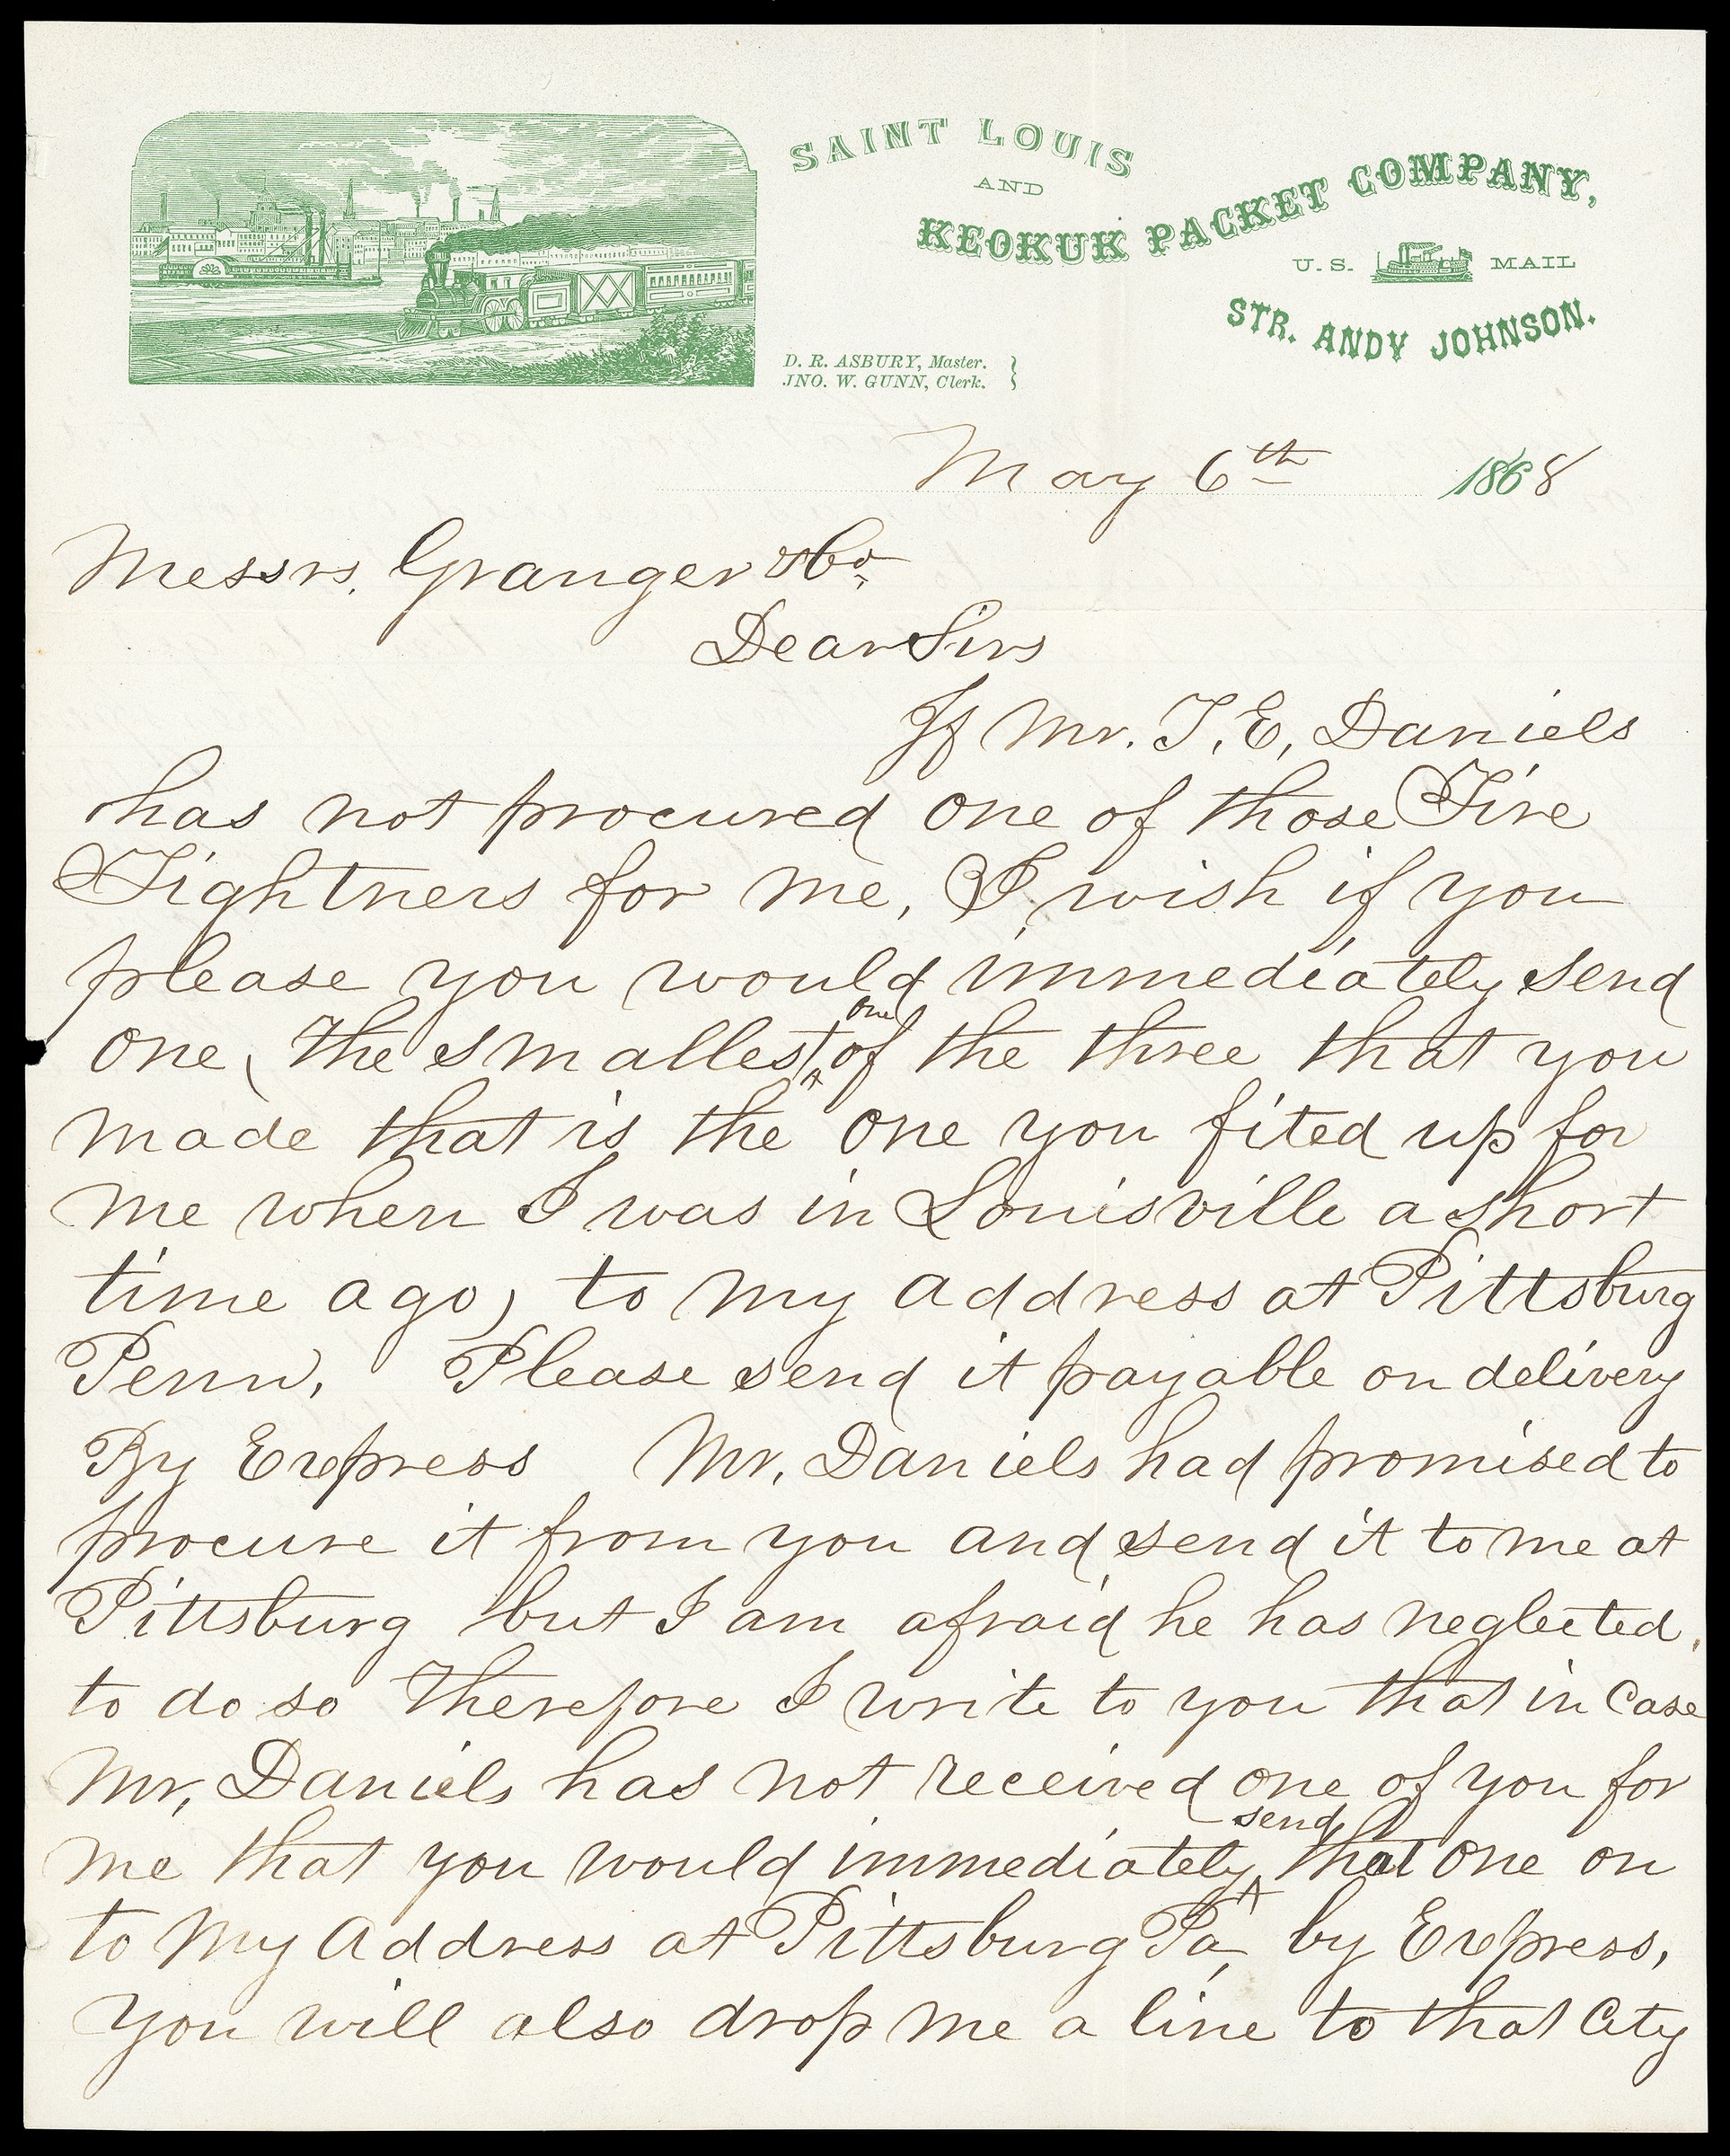 SAINT LOUIS
AND
KEOKUK PACKET COMPANY,
U.S. MAIL
STR. ANDY JOHNSON.
D. R. ASBURY, Master.
JNO. W. GUNN, Clerk.
May 6th 1868
Messrs. Granger & Co.
Dear Sirs
If Mr. T. E, Daniels
has not procured one of those Fire
Tightners for me, I wish if you
please you would immediately send
one, the smallest one of the three that you
made that is the one you fited up for
me when I was in Louisville a short
time ago, to my address at Pittsburg
Penn. Please send it payable on delivery
By Express Mr. Daniels had promised to
procure it from you and send it to me at
Pittsburg but I am afraid he has neglected,
to do so Therefore I write to you that in Case
Mr, Daniels has not received one of you for
me that you would immediately send that one on
to My Address at Pittsburg Pa, by Express,
You will also drop me a line to that City